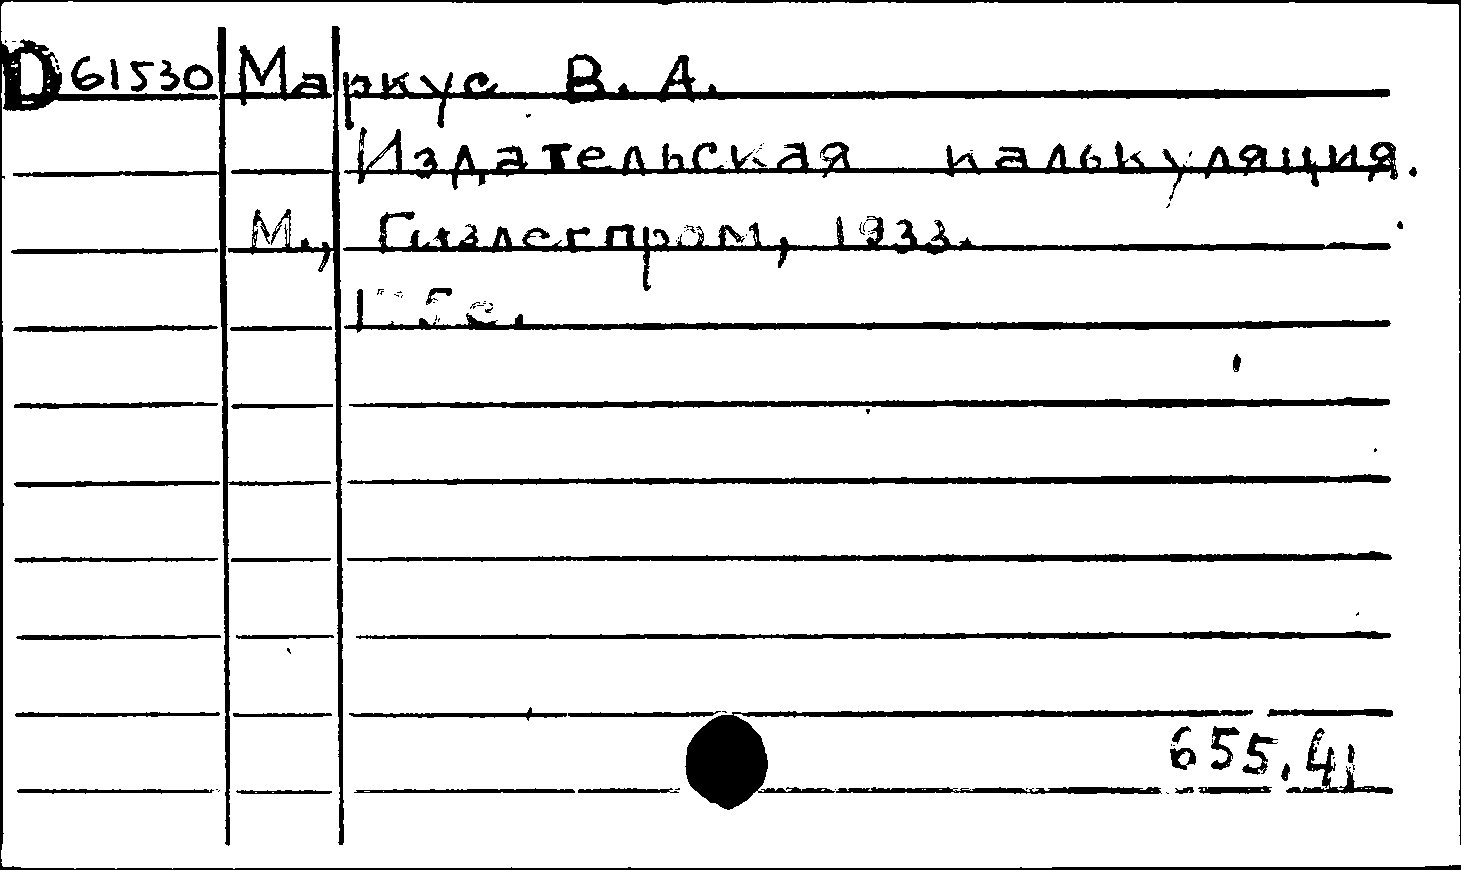 D 61530 Маркус В. А.
Издательская калькуляция.
М., Гизлегпром, 1933.
с.
655.41